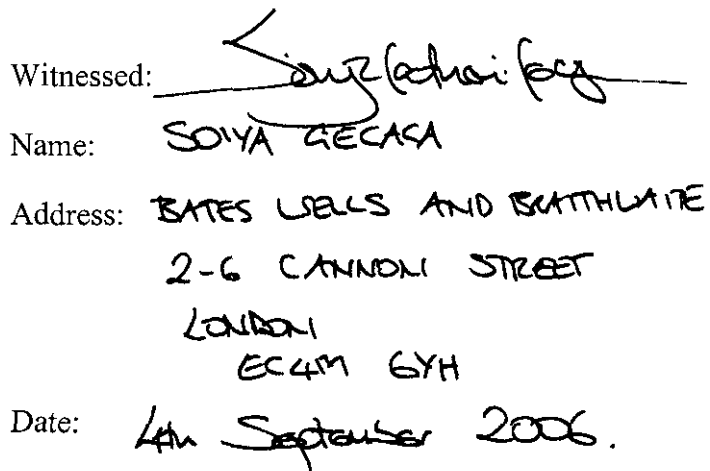 Witnessed:
Name: SOIYA GECAGA
Address: BATES WELLS AND BRAITHWAITE
2-6 CANNON STREET
LONDON
EC4M 6YH
Date: 4th September 2006.